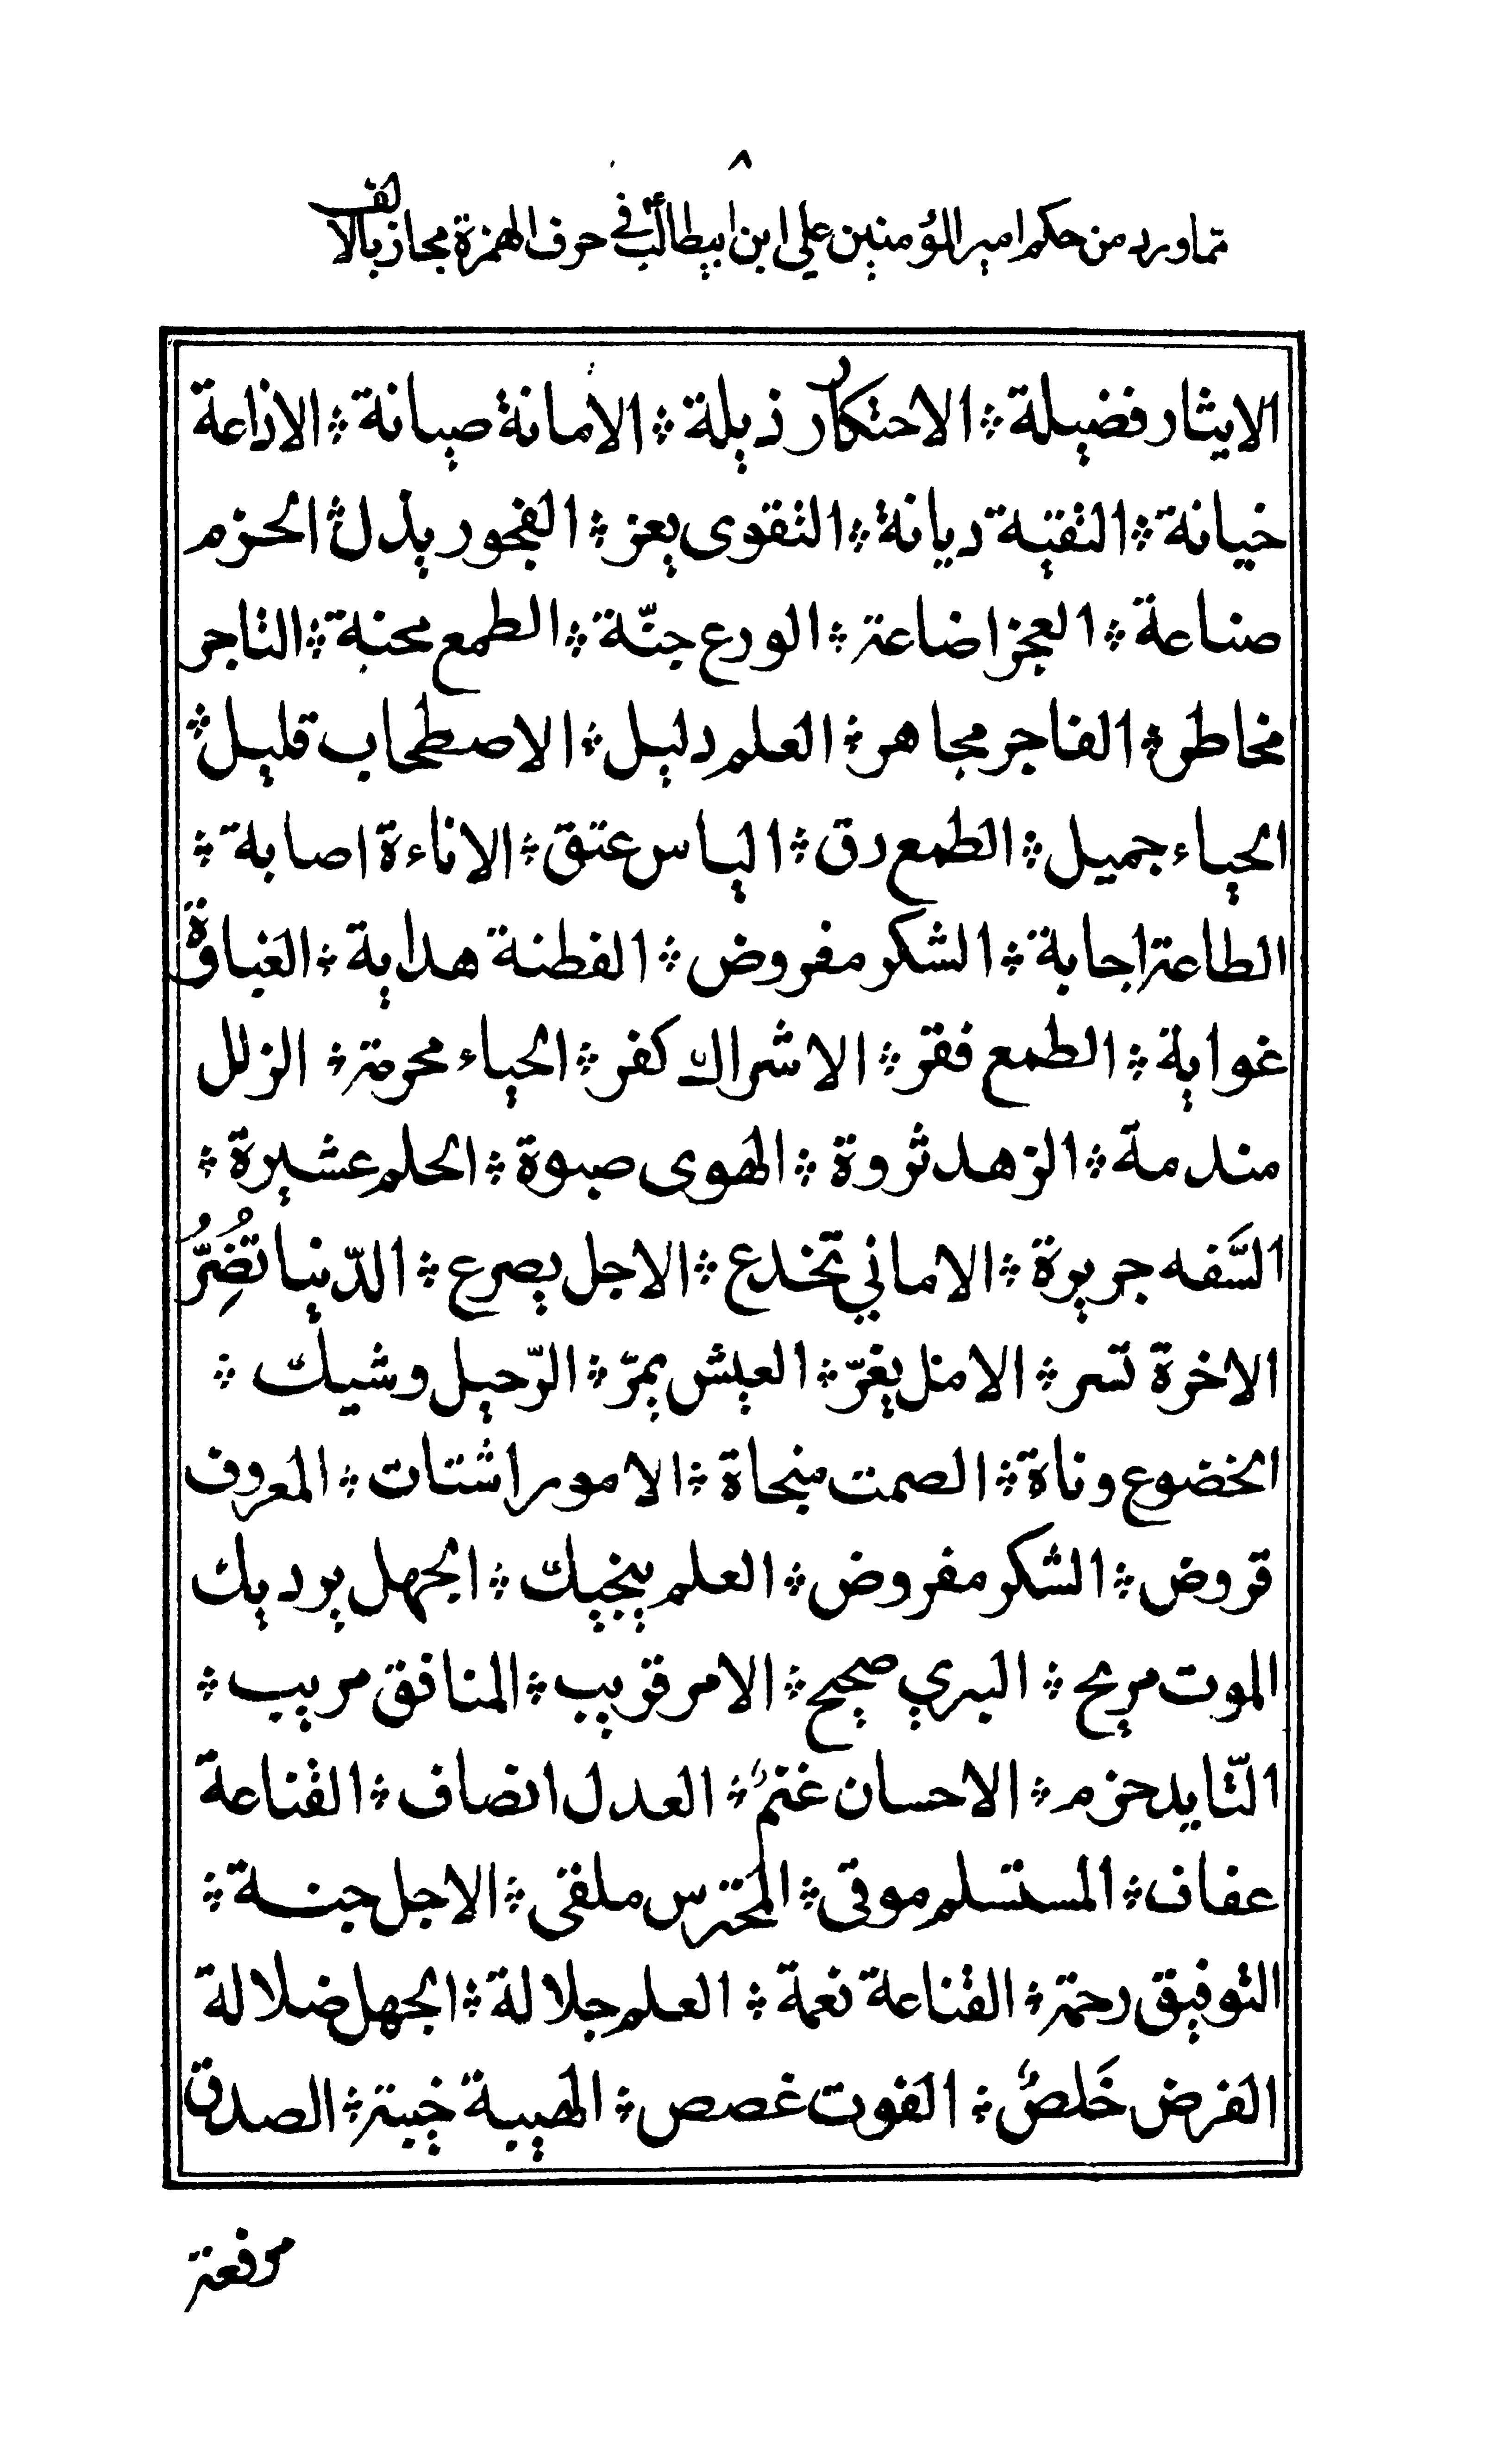 ٨
مما ورد من حكم امير المؤمنين علي ابن ابيطالب في حرف الهمزة مجاز بالالف
الايثار فضيلة ؞ الاحتكار رذيلة ؞ الامانة صيانة ؞ الاذاعة
خيانة ؞ التقيّة ديانة ؞ التقوى يعز ؞ الفجور يذل ؞ الحزم
صناعة ؞ العجز اضاعة ؞ الورع جنّة ؞ الطمع محنة ؞ التاجر
مخاطر ؞ الفاجر مجاهر ؞ العلم دليل ؞ الاصطحاب قليل ؞
الحياء جميل ؞ الطمع رق ؞ الياس عتق ؞ الاناءة اصابة ؞
الطاعة اجابة ؞ الشكر مفروض ؞ الفطنة هداية ؞ الغباوة
غواية ؞ الطمع فقر ؞ الاشراك كفر ؞ الحياء محرمة ؞ الزلل
مندمة ؞ الزهد ثروة ؞ الهوى صبوة ؞ الحلم عشيرة ؞
السَّفه جريرة ؞ الاماني تخدع ؞ الاجل يصرع ؞ الدّنيا تُضِرُّ
الاخرة تسر ؞ الامل يغرّ ؞ العيش يمرّ ؞ الرّحيل وشيك ؞
الخضوع وناة ؞ الصمت منجاة ؞ الامور اشتات ؞ المعروف
قروض ؞ الشكر مفروض ؞ العلم ينجيك ؞ الجهل يرديك
الموت مريح ؞ البري صحيح ؞ الامر قريب ؞ المنافق مريب ؞
التّايد حزم ؞ الاحسان غنمٌ ؞ العدل انصاف ؞ القناعة
عفاف ؞ المستسلم موقى ؞ المحترس ملقى ؞ الاجل جنة ؞
التوفيق رحمة ؞ القناعة نعمة ؞ العلم جلالة ؞ الجهل ضلالة
الفرض خَلصٌ ؞ الفوت غصص ؞ الهيبة خيبة ؞ الصدق
مرفعة